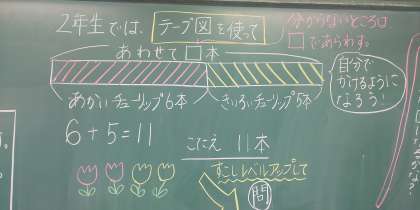 2年生では、テープ図を使って
分からないところは
□であらわす。
あわせて□本
あかいチューリップ6本
きいろいチューリップ5本
自分で
かけるように
なろう!
6+5=11
こたえ 11本
すこしレベルアップして
問